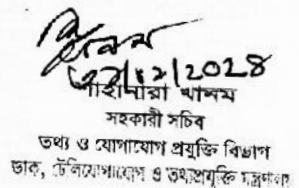 /১২/২০২৪
খানম
সহকারী সচিব
তথ্য ও যোগাযোগ প্রযুক্তি বিভাগ
ডাক, টেলিযোগাযোগ ও তথ্যপ্রযুক্তি মন্ত্রণালয়